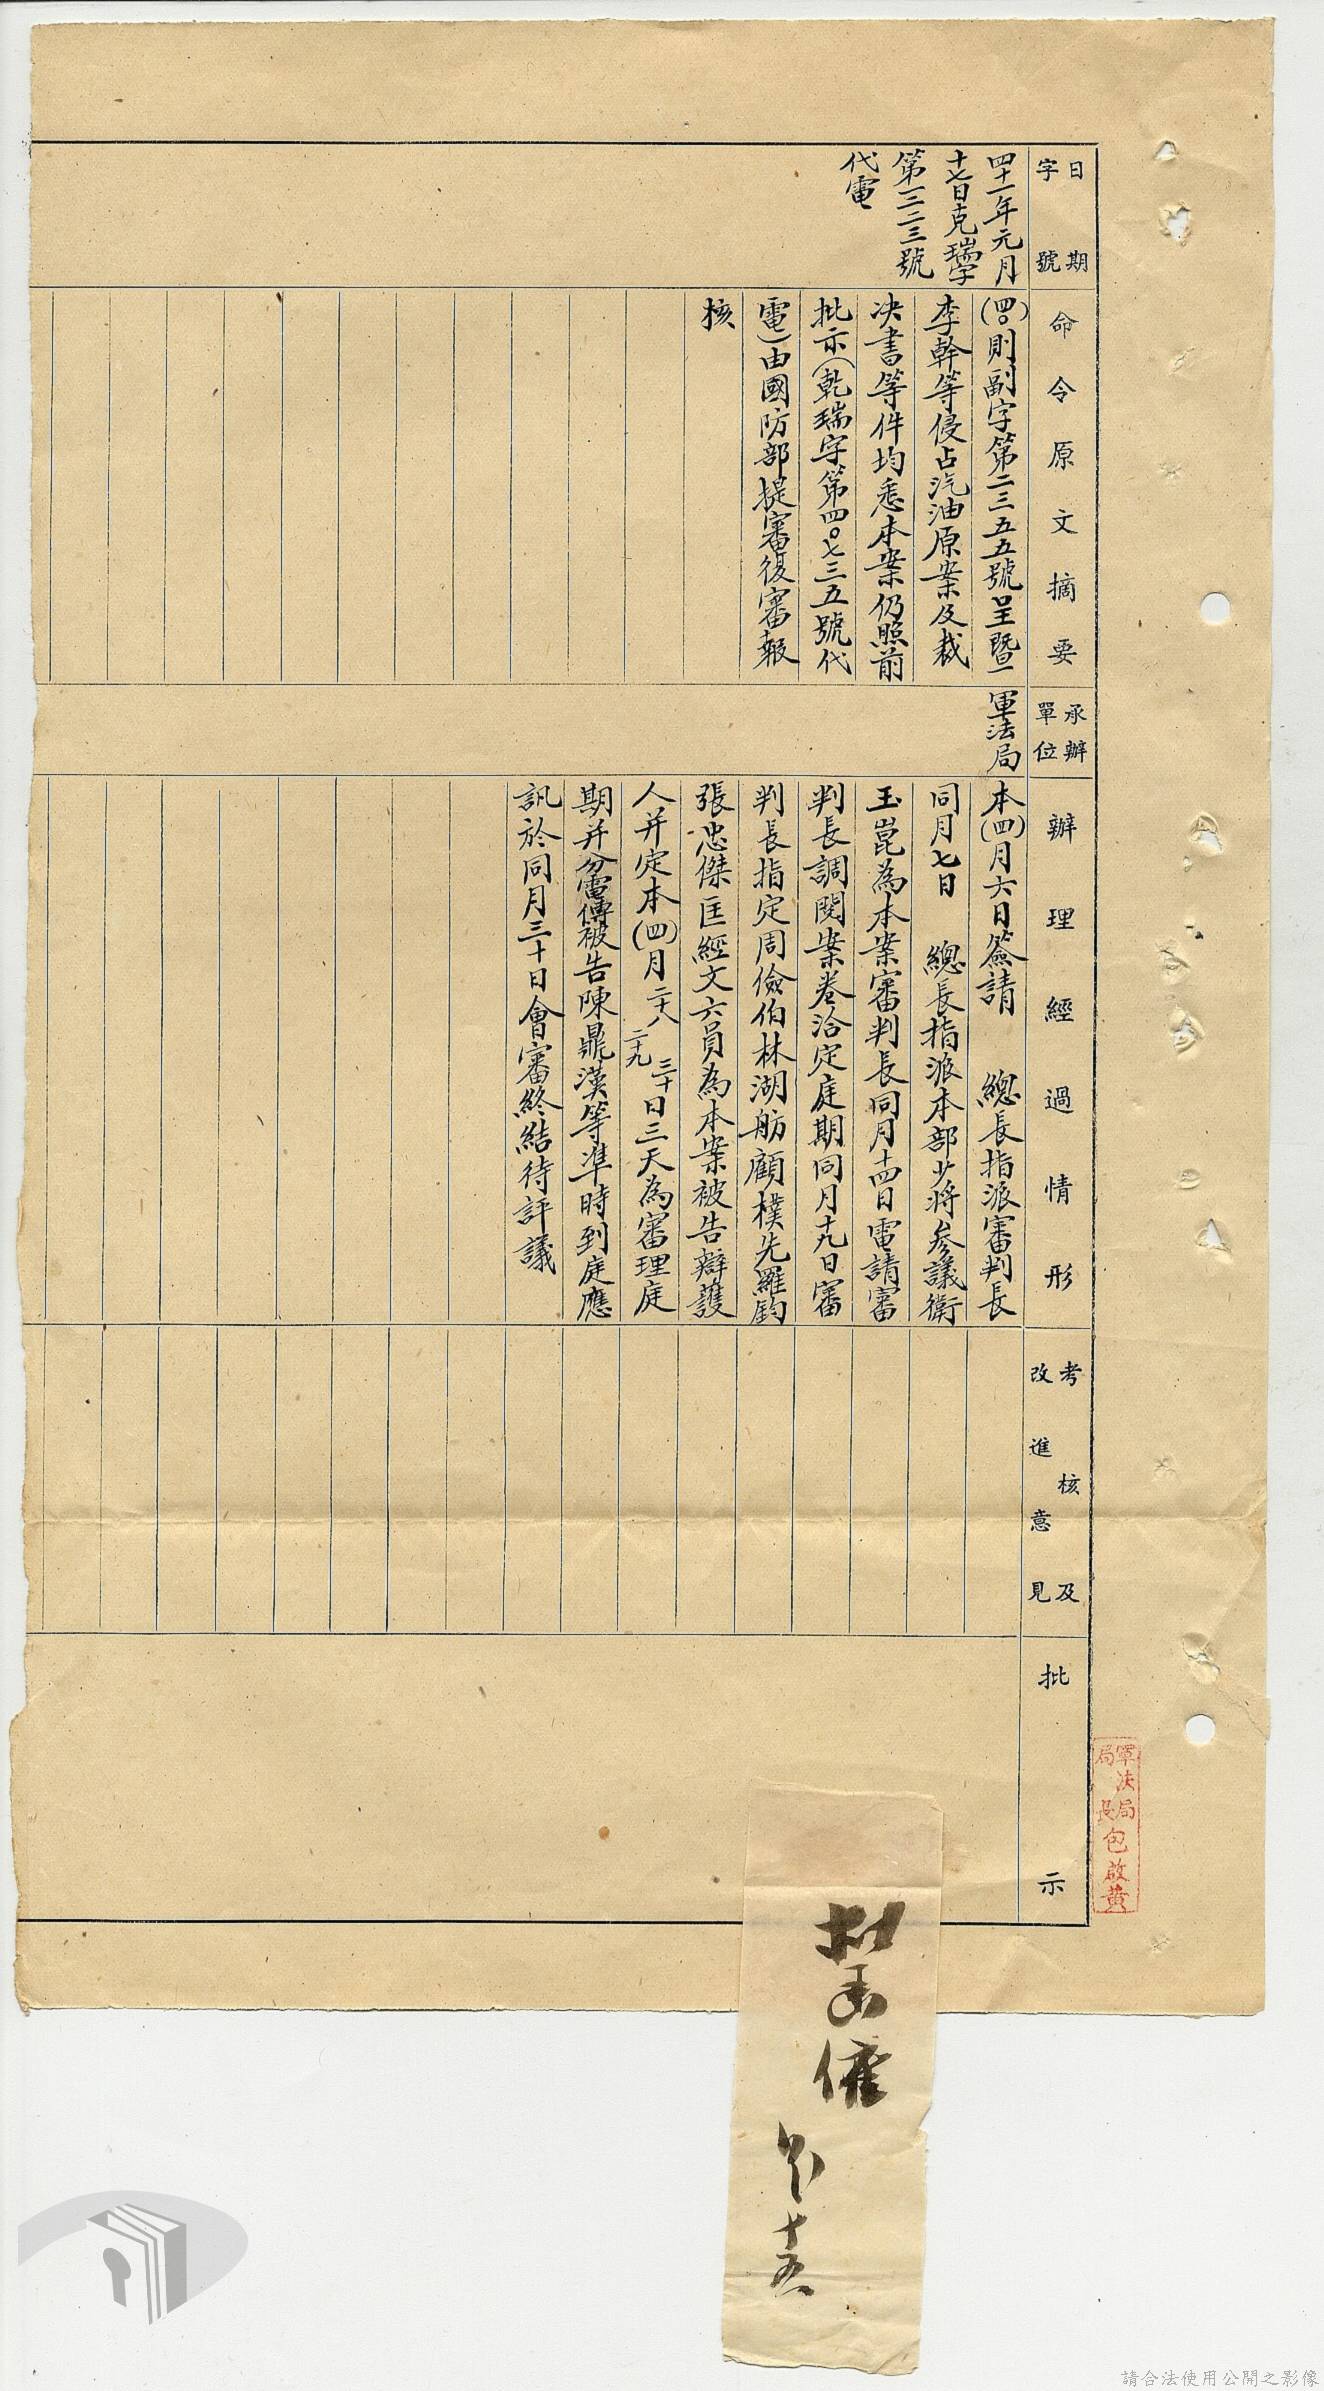 日期
字號
命令原文摘要
承辦
單位
辦理經過情形
考核及
改進意見
批示
四十一年元月
十七日克瑞字
第一三二三號
代電
(四〇)則副字第二三五五號呈暨
李幹等侵占汽油原案及裁
決書等件均悉本案仍照前
批示(乾瑞字第四〇七三五號代
電)由國防部提審復審報
核
軍法局
本(四)月六日簽請 總長指派審判長
同月七日 總長指派本部少將參議衛
玉崑為本案審判長同月十四日電請審
判長調閱案卷洽定庭期同月十九日審
判長指定周儉伯林湖舫顧樸先羅鈞
張忠傑匡經文六員為本案被告辯護
人并定本(四)月二十八二十九三十日三天為審理庭
期并分電傳被告陳鼎漢等準時到庭應
訊於同月三十日會審終結待評議
軍法局
局長包啟黃
十五
請合法使用公開之影像